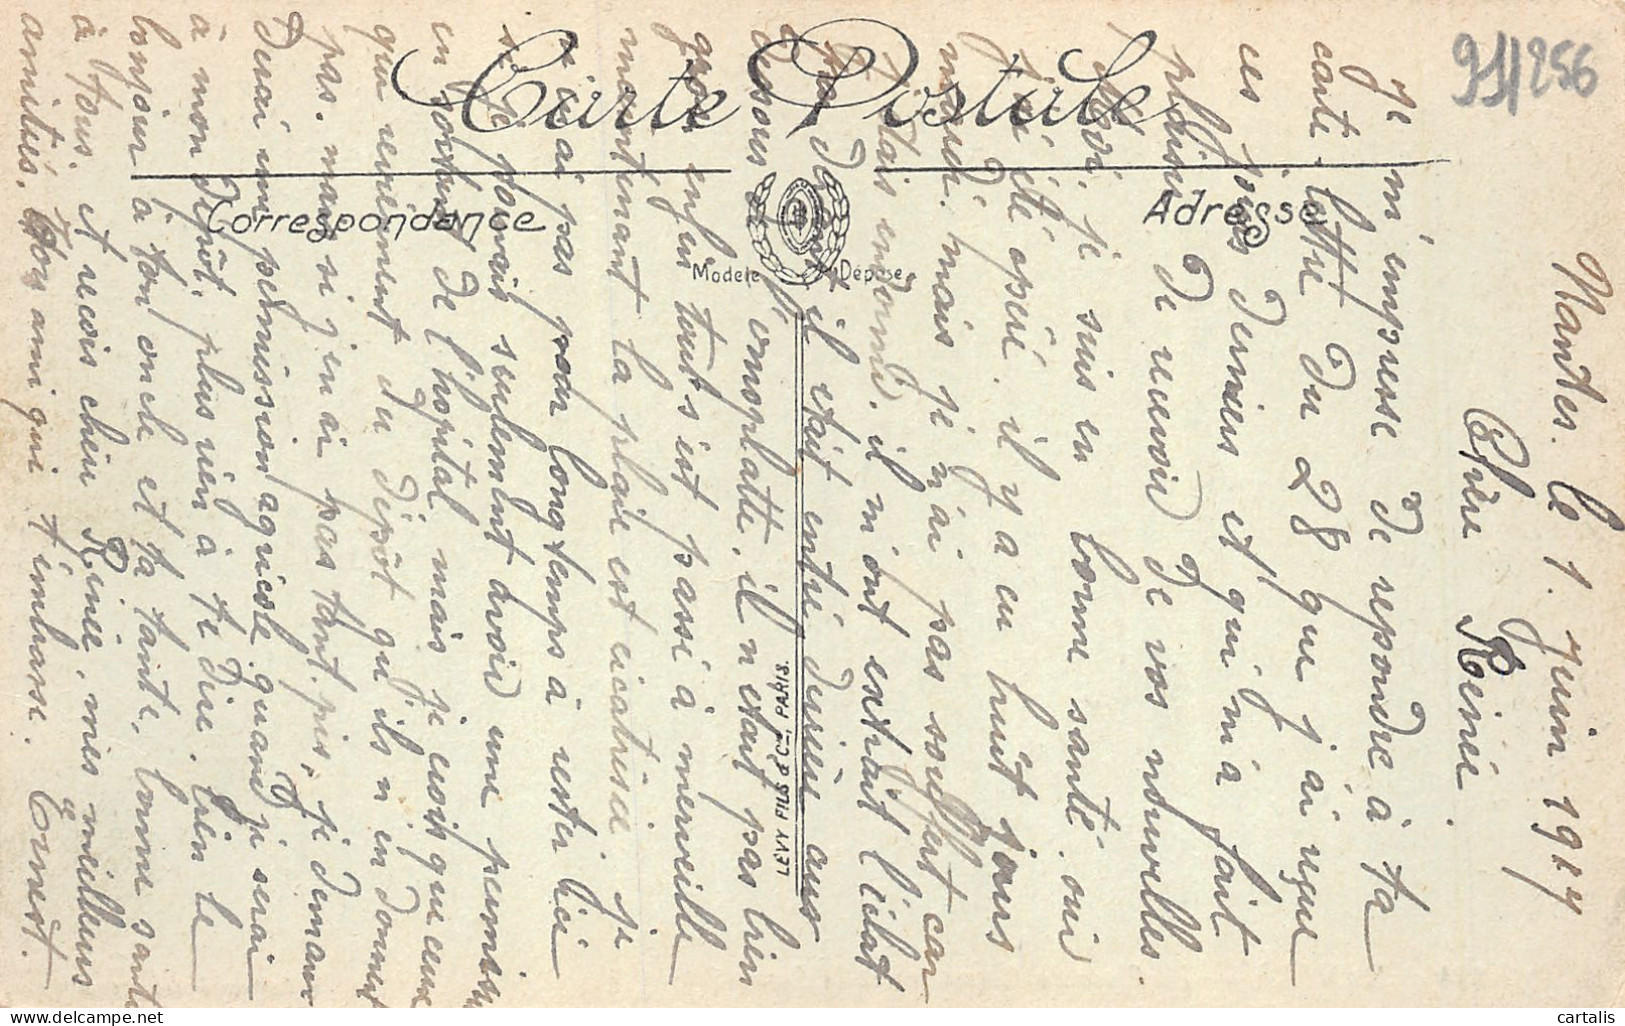 Carte Postale
Correspondance
Adresse
Modèle Déposé
LEVY FILS & Cie, PARIS
95/256
Nantes. le 1. Juin 1917
Chère Reinée.
Je m'empresse de repondre à ta
carte lettre du 28 que j'ai reçue
ces jours derniers et qui m'a fait
plaisir de recevoir de vos nouvelles.
moi, je suis en bonne santé. oui
j'ai été opéré. il y a eu huit jours
mardi. mais je n'ai pas souffert car
j'étais endormi. il m'ont extrait l'éclat
d'obus dont il etait entré dérrière aus
dessous d' l'omoplatte. il n'etait pas bien
gros enfin tout s'est passé à merveille
maintenant la plaie est cicatrisée. je
n'ai pas pour longtemps à rester ici
si je pouvais sulement avoir une permission
en sortant de l'hopital mais je crois que ceux
qui reviennent du dépôt qu'ils n'en donnent
pas. mais si j'en ai pas tant pis, je deman
derai une permission agricole quand je serai
à mon dépôt. plus rien à te dire. bien le
bonjour à ton oncle et ta tante. bonne santé
à tous. et recois chère Reinée, mes meilleurs
amitiés. ton ami qui t'embrasse. Ernest.
cartalis